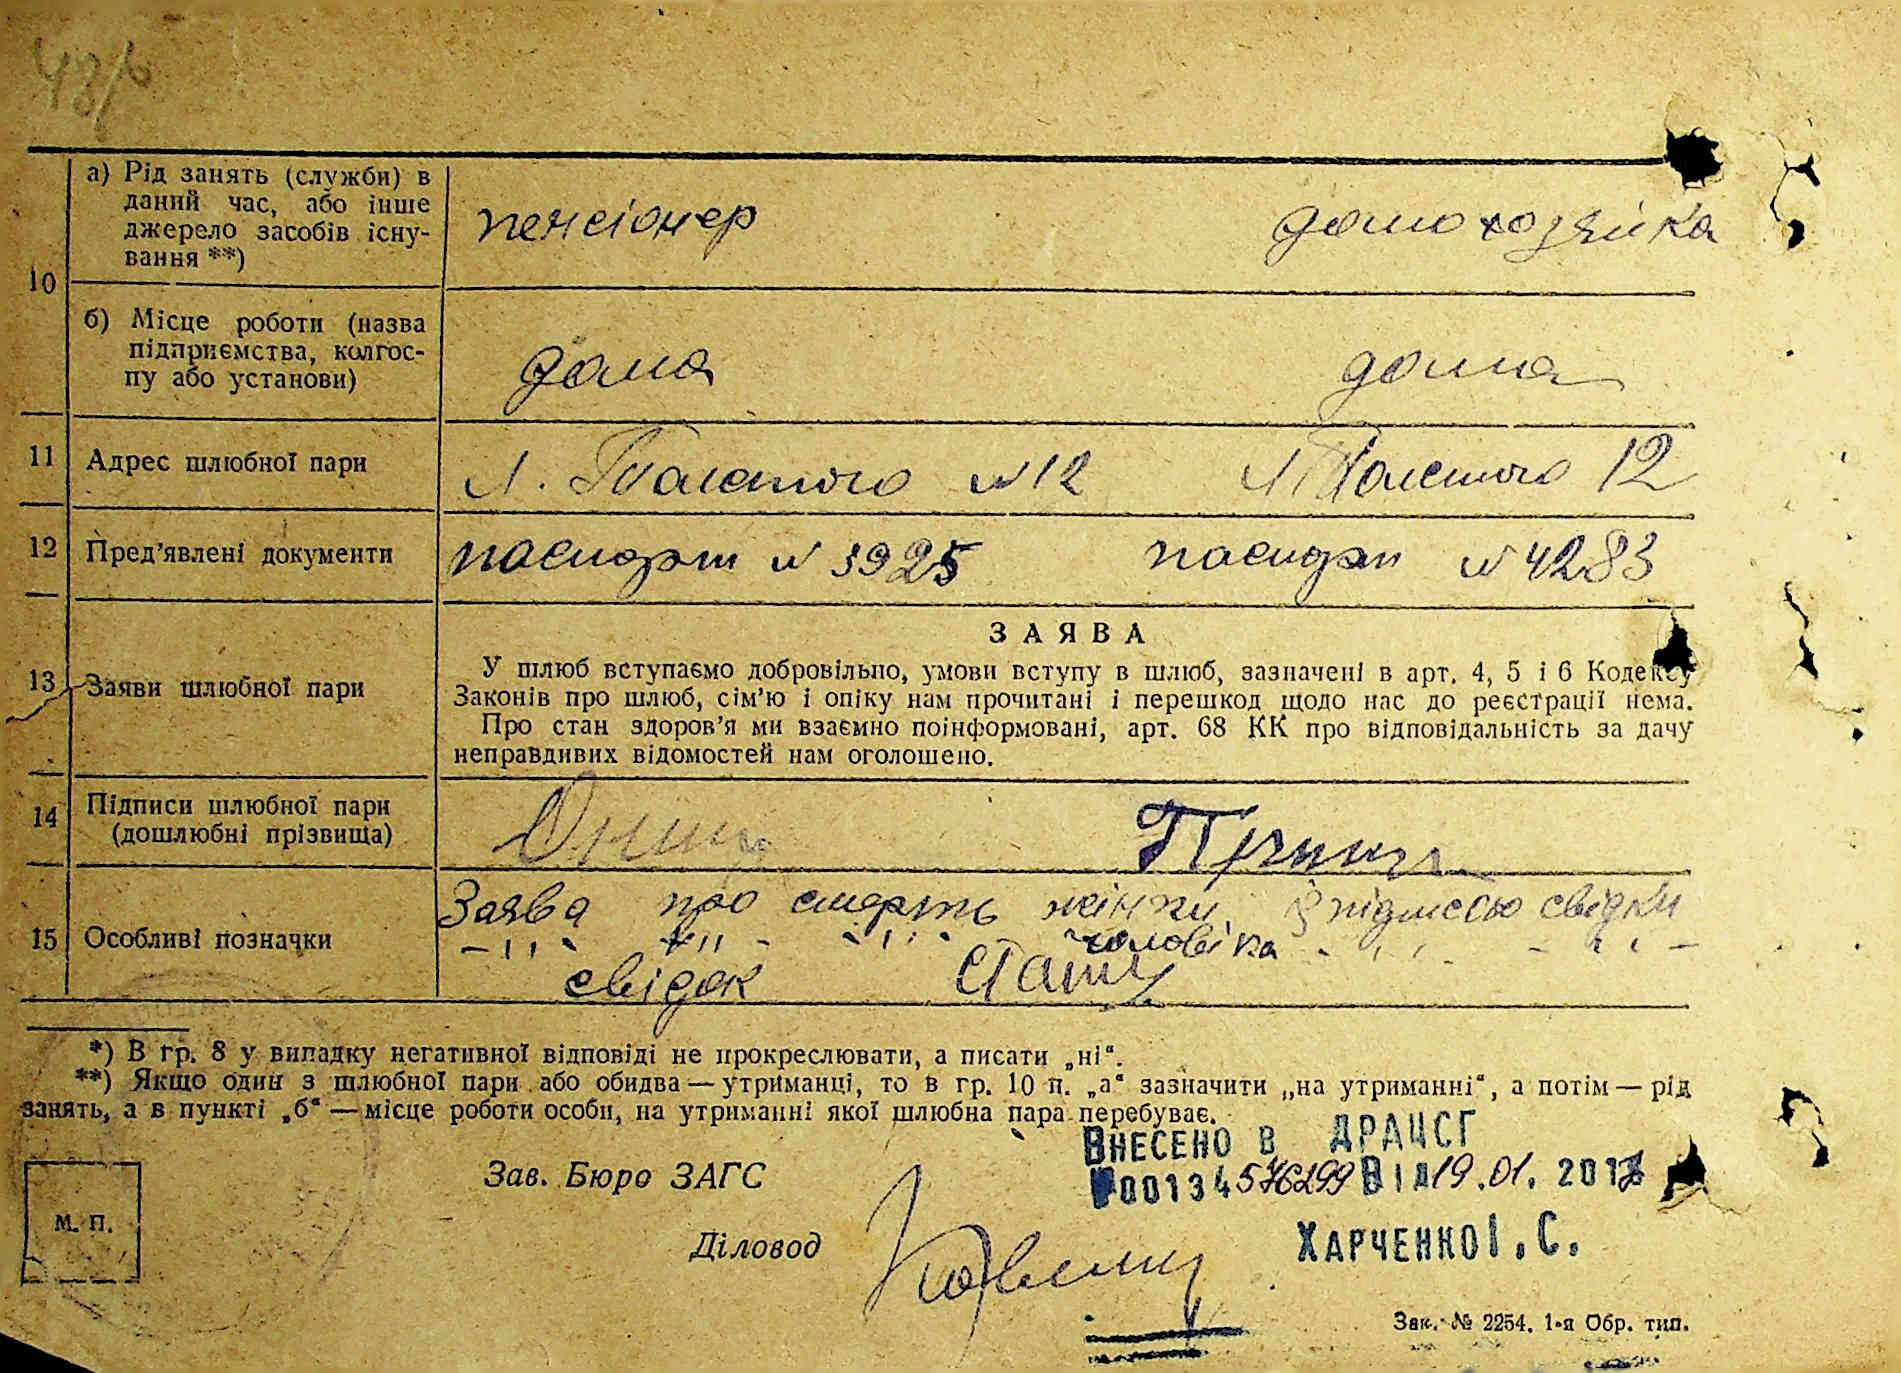 а) Рід занять (служби) в
даний час, або інше
джерело засобів існу-
вання **)
пенсіонер
домохозяйка
10
б) Місце роботи (назва
підприємства, колгос-
пу або установи)
дома
дома
11
Адрес шлюбної пари
Л. Толстого №12
Л. Толстого 12
12
Пред’явлені документи
паспорт № 3925
паспорт № 4283
13
Заяви шлюбної пари
ЗАЯВА
У шлюб вступаємо добровільно, умови вступу в шлюб, зазначені в арт. 4, 5 і 6 Кодексу
Законів про шлюб, сім’ю і опіку нам прочитані і перешкод щодо нас до реєстрації нема.
Про стан здоров’я ми взаємно поінформовані, арт. 68 КК про відповідальність за дачу
неправдивих відомостей нам оголошено.
14
Підписи шлюбної пари
(дошлюбні прізвища)
15
Особливі позначки
Заява про смерть жінки, з підписью свідки
– ’’ – – ’’ – – ’’ – чоловіка – ’’ – – ’’ –
свідок
*) В гр. 8 у випадку негативної відповіді не прокреслювати, а писати „ні“.
**) Якщо один з шлюбної пари або обидва — утриманці, то в гр. 10 п. „а“ зазначити „на утриманні“, а потім — рід
занять, а в пункті „б“ — місце роботи особи, на утриманні якої шлюбна пара перебуває.
ВНЕСЕНО В ДРАЦСГ
№00134576299 ВІД 19.01.2017
ХАРЧЕНКО І. С.
Зав. Бюро ЗАГС
Діловод
М. П.
Зак. № 2254. 1-я Обр. тип.